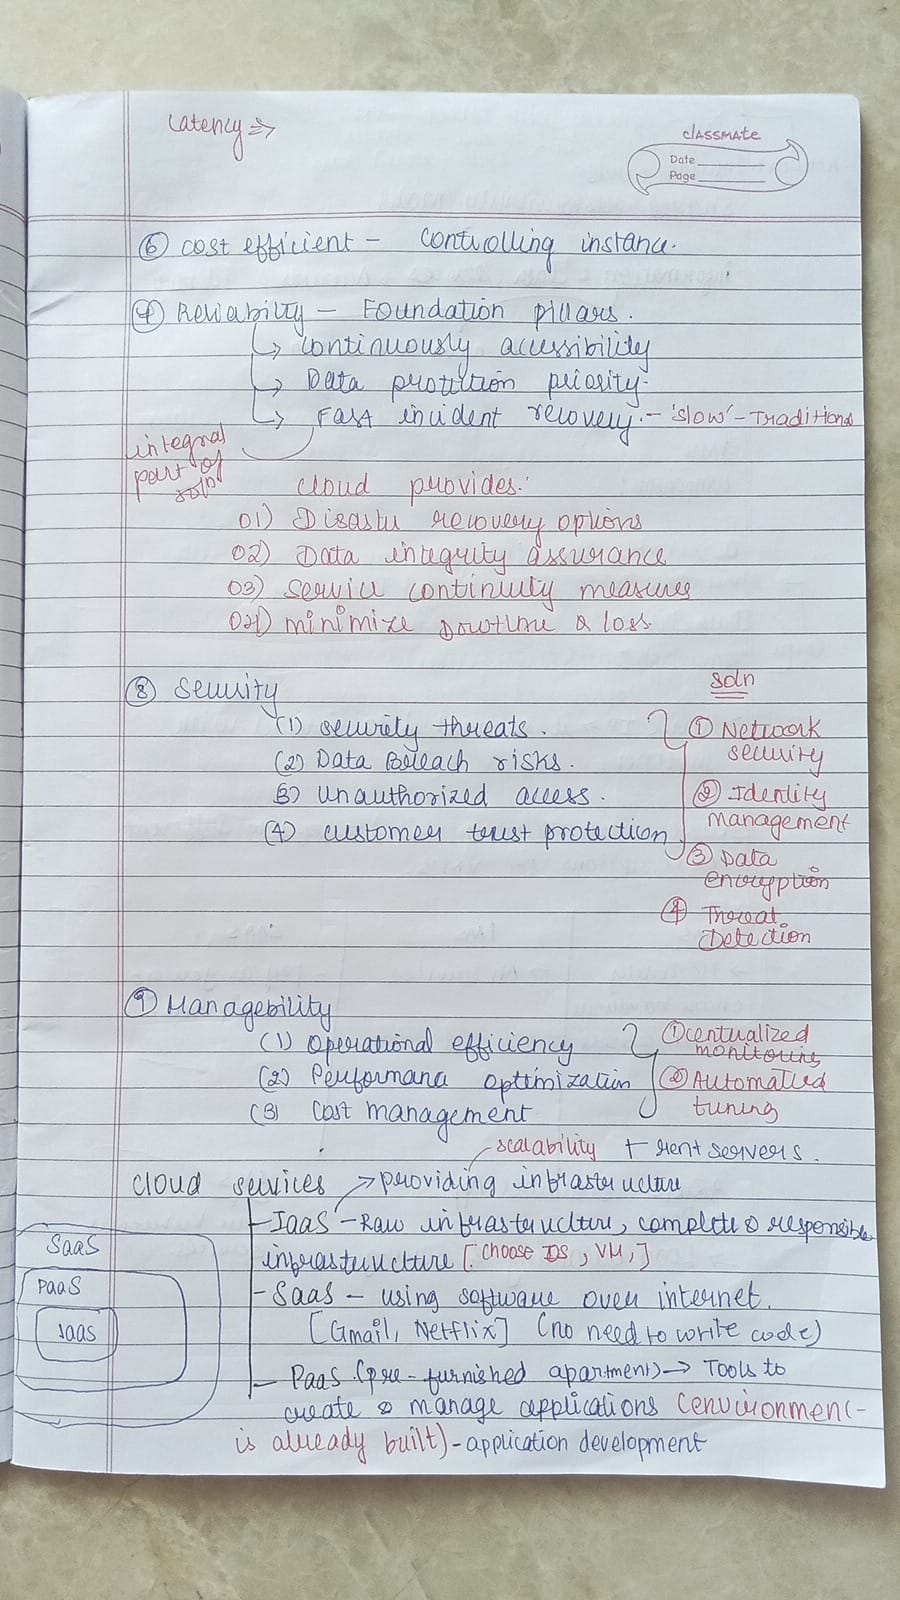 Latency =>
classmate
Date
Page
⑥ cost efficient - controlling instance.
⑦ Reliabilty - Foundation pillars.
↳ continuously accessibility
↳ Data protection priority.
↳ Fast incident recovery. - 'slow' - Traditional
integral
part of
soln
cloud provides:
01) Disaster recovery options
02) Data integrity assurance
03) service continuity measures
04) minimize downtime & loss.
⑧ security
soln
(1) security threats.
① Network
security
(2) Data Breach risks.
(3) unauthorized access.
② Identity
management
(4) customer trust protection
③ Data
encryption
④ Threat
Detection
⑨ Managebility
(1) Operational efficiency
① centralized
monitoring
(2) Performance optimization
② Automated
tuning
(3) cost management
scalability + rent servers.
cloud services → providing infrastructure
- IaaS - Raw infrastructure, complete & responsible
infrastructure [choose OS, VM,]
SaaS
PaaS
IaaS
- SaaS - using software over internet.
[Gmail, Netflix] (no need to write code)
- PaaS (pre-furnished apartment) → Tools to
create & manage applications (environment
is already built) - application development